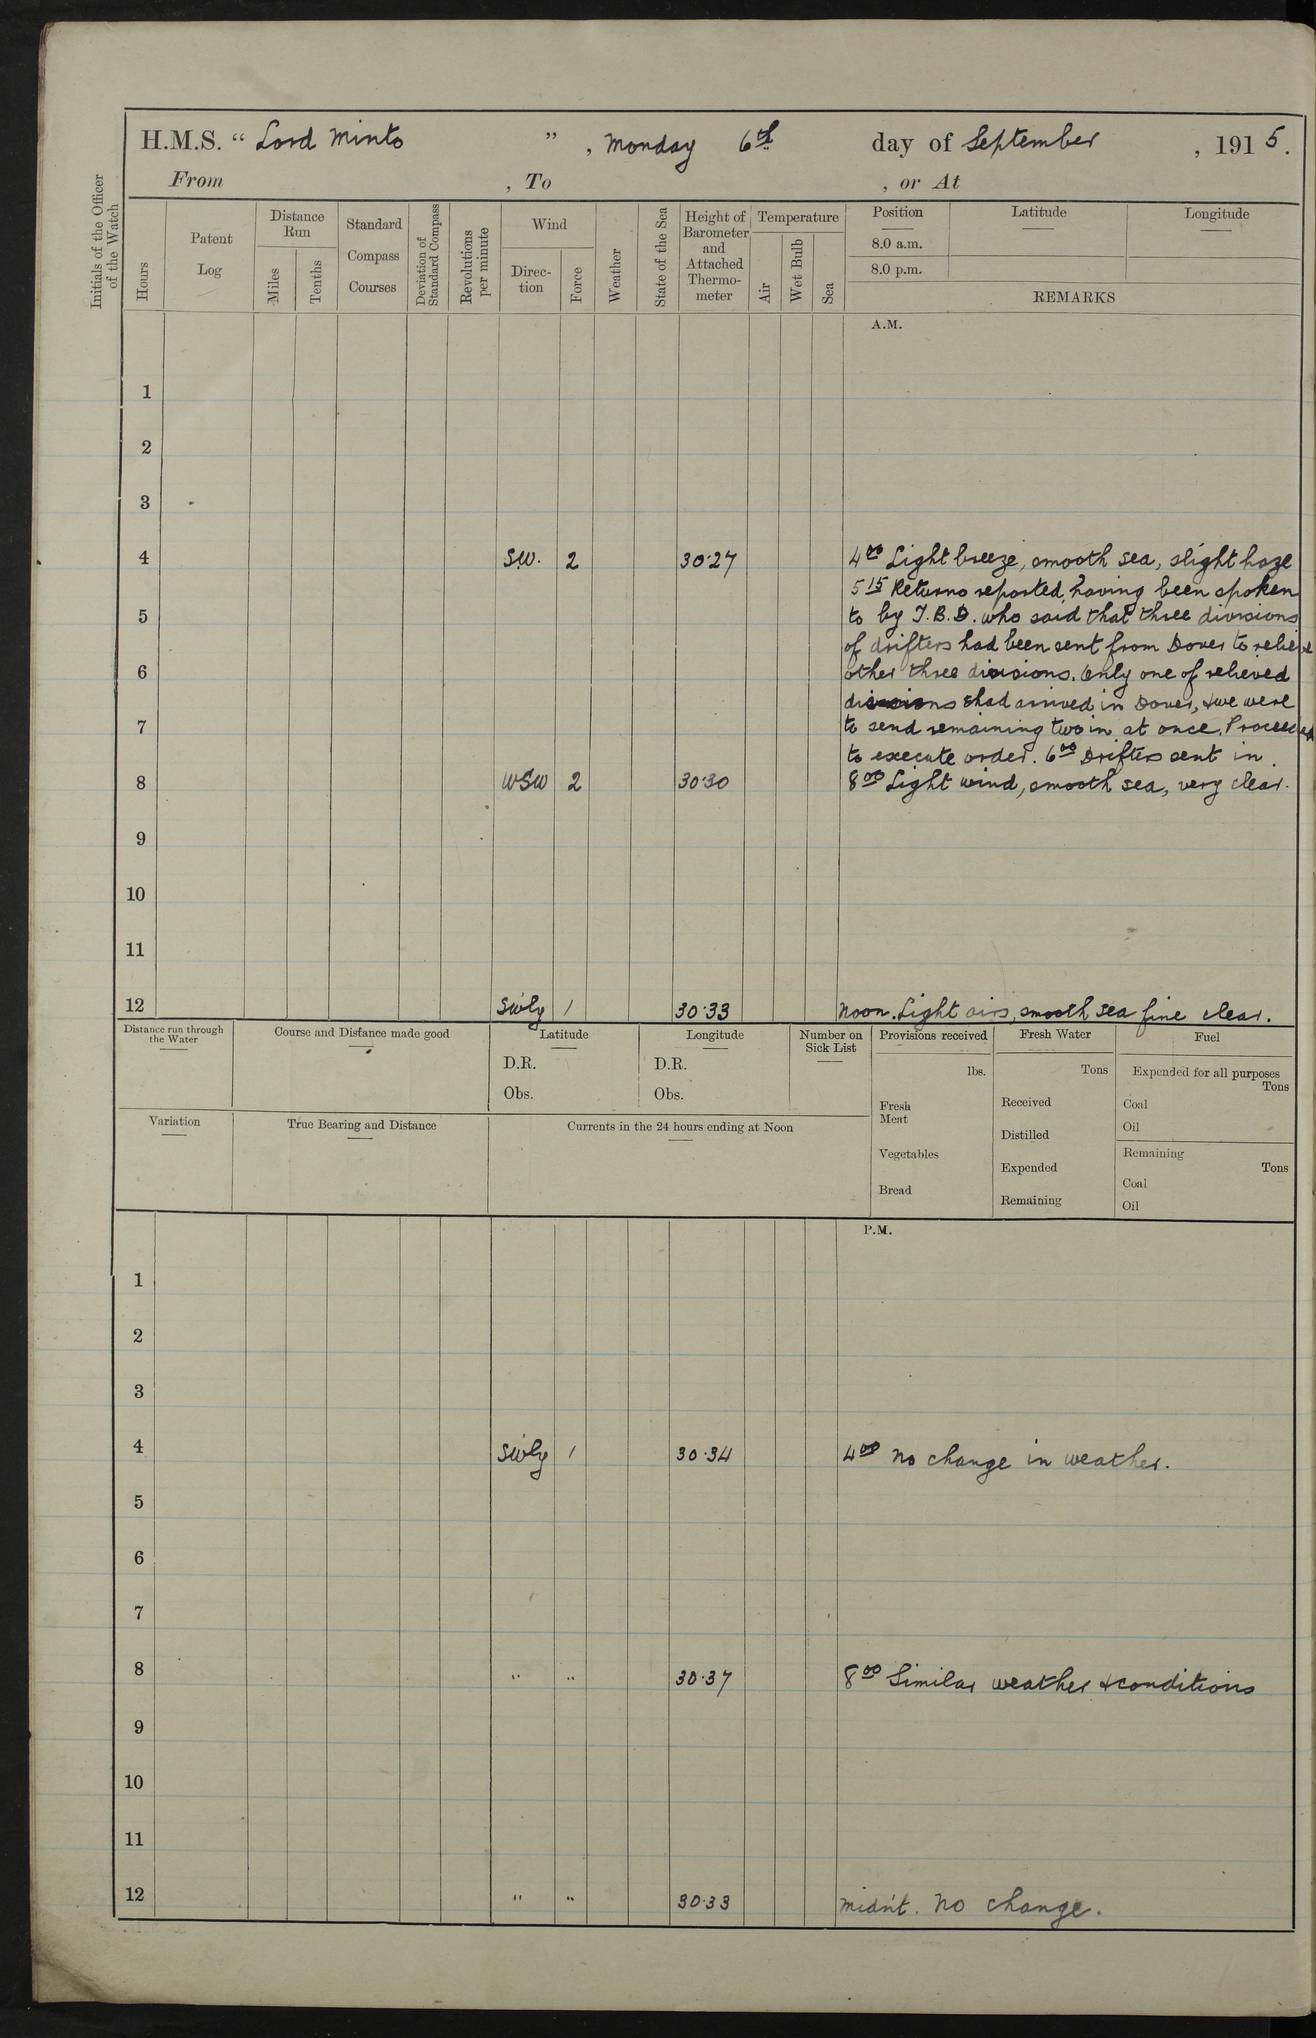 H.M.S. “ Lord Minto ”, Monday 6th day of September, 1915.
From , To , or At
Initials of the Officer of the Watch
Hours
Patent Log
Distance Run
Miles
Tenths
Standard Compass Courses
Deviation of Standard Compass
Revolutions per minute
Wind
Direc-tion
Force
Weather
State of the Sea
Height of Barometer and Attached Thermo-meter
Temperature
Air
Wet Bulb
Sea
Position
Latitude
Longitude
8.0 a.m.
8.0 p.m.
REMARKS
A.M.
1
2
3
4 SW. 2 30·27 4 00 Light breeze, smooth sea, slight haze
5 15 Returno reported, having been spoken
5 to by T.B.D. who said that three divisions
of drifters had been sent from Dover to relieve
6 other three divisions. Only one of relieved
divisions had arrived in Dover, & we were
7 to send remaining two in at once. Proceeded
to execute order. 6 00 Drifters sent in.
8 WSW 2 30·30 8 00 Light wind, smooth sea, very clear.
9
10
11
12 SWly 1 30·33 Noon. Light airs, smooth sea fine clear.
Distance run through the Water
Course and Distance made good
Latitude
D.R.
Obs.
Longitude
D.R.
Obs.
Number on Sick List
Provisions received
lbs.
Fresh Meat
Vegetables
Bread
Fresh Water
Tons
Received
Distilled
Expended
Remaining
Fuel
Expended for all purposes
Tons
Coal
Oil
Remaining
Tons
Coal
Oil
Variation
True Bearing and Distance
Currents in the 24 hours ending at Noon
P.M.
1
2
3
4 SWly 1 30·34 4 00 No change in weather.
5
6
7
8 " " 30·37 8 00 Similar weather & conditions
9
10
11
12 " " 30·33 Midn't. No change.